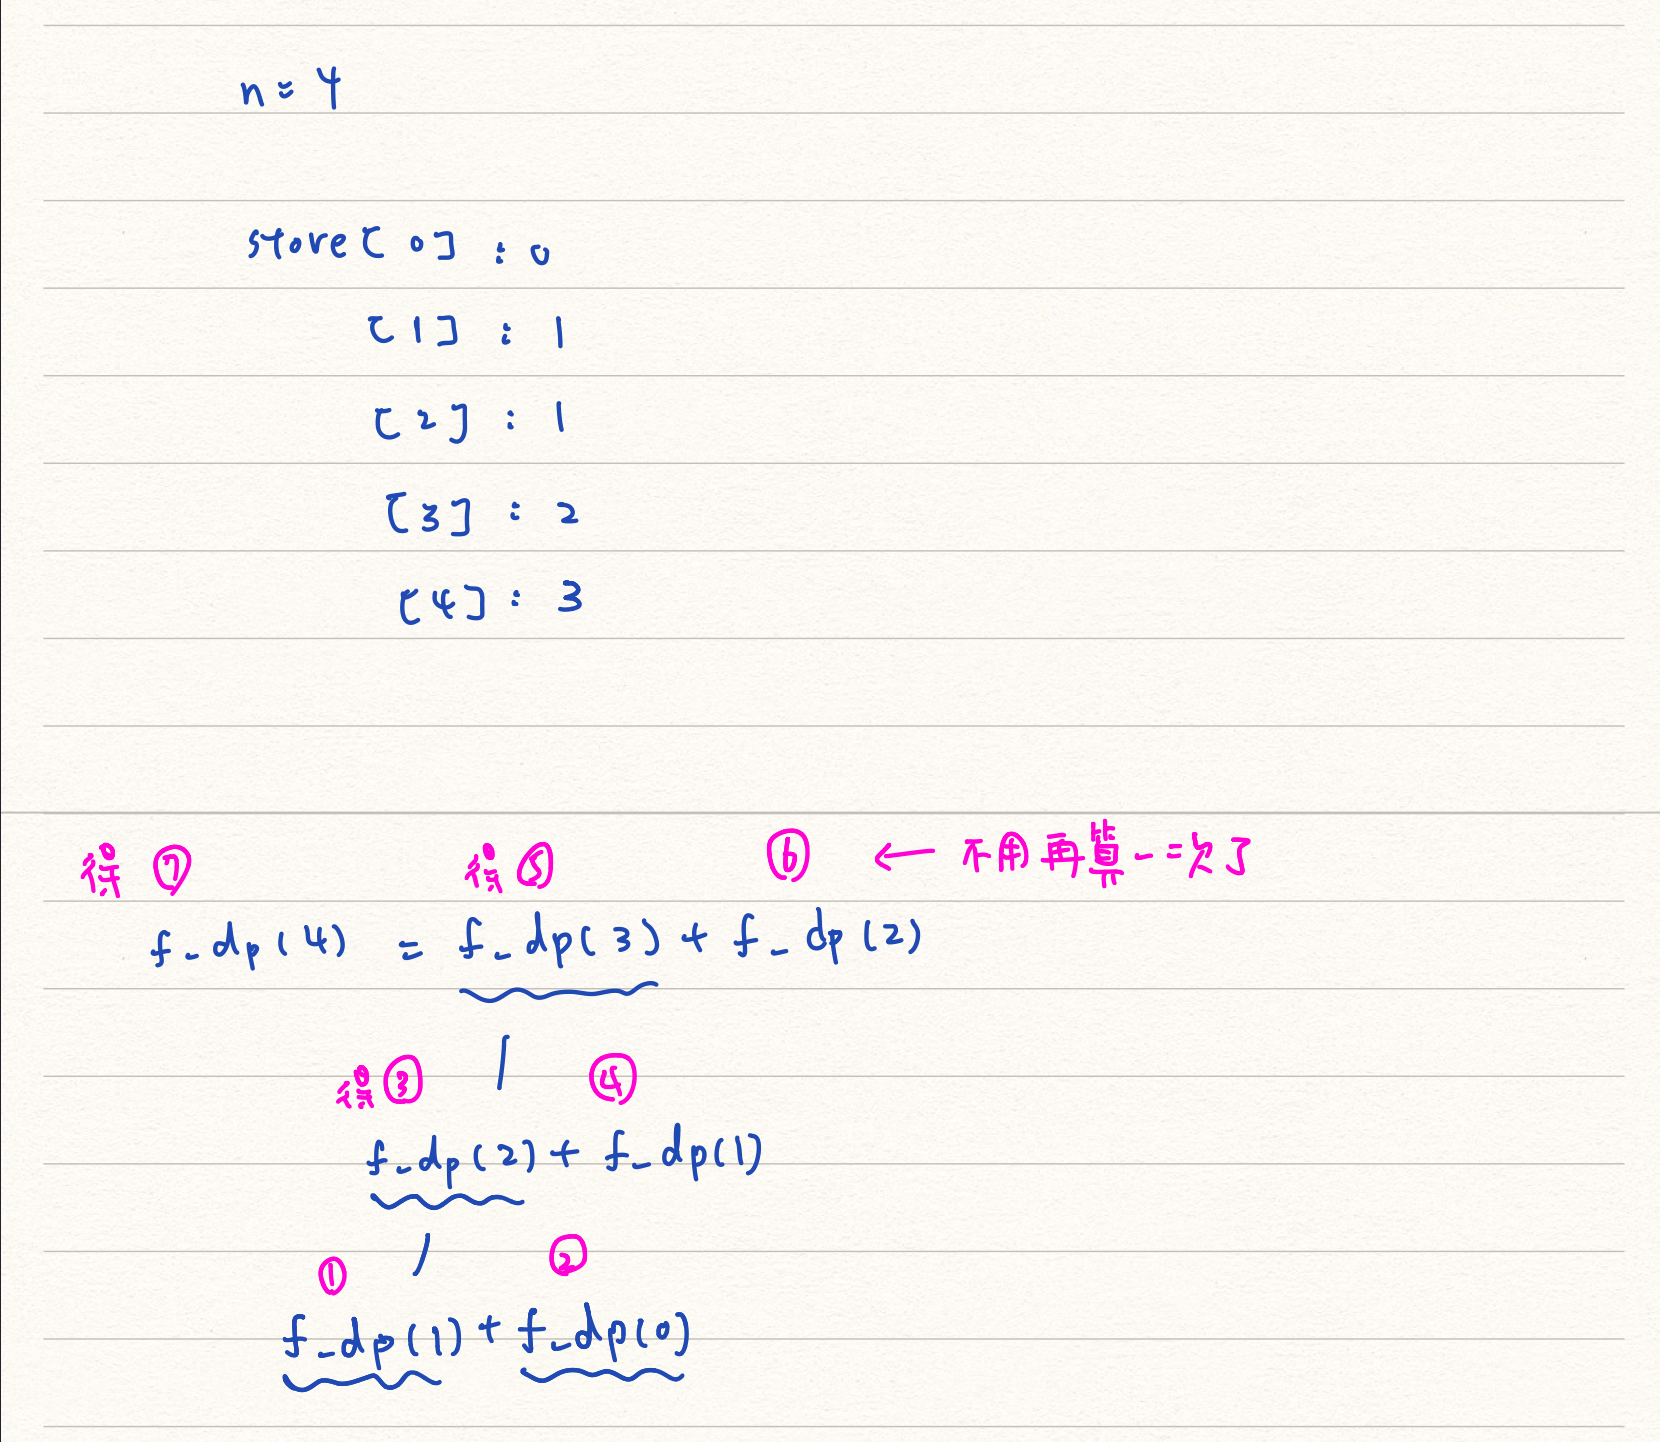 n = 4
store[0] : 0
[1] : 1
[2] : 1
[3] : 2
[4] : 3
得⑦ 得⑤ ⑥ ← 不用再算一次了
f_dp(4) = f_dp(3) + f_dp(2)
得③ ④
f_dp(2) + f_dp(1)
① ②
f_dp(1) + f_dp(0)